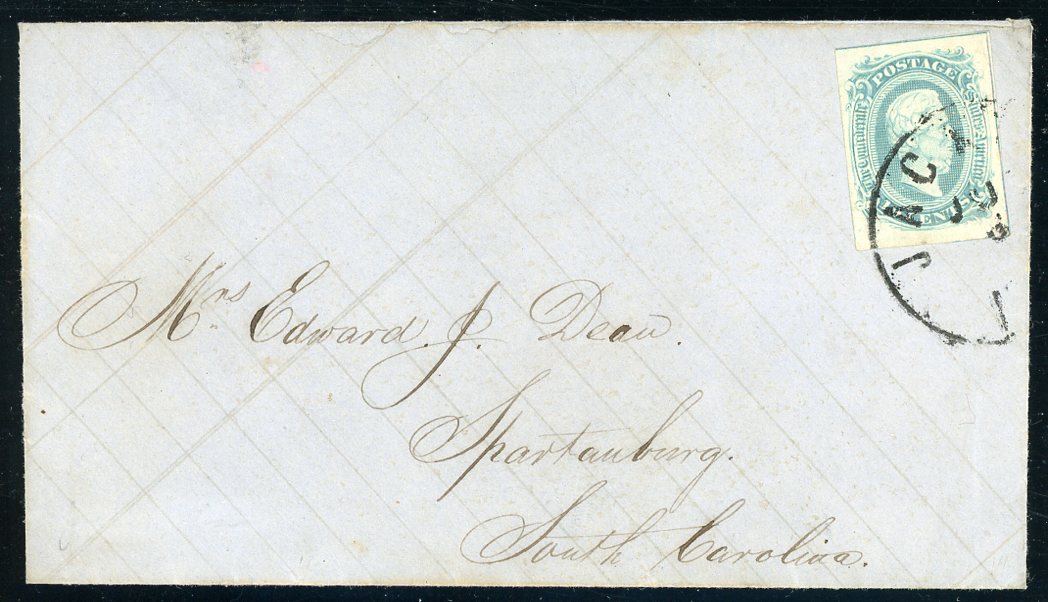 POSTAGE
The Confederate States of America
JAC
Mrs Edward J. Dean.
Spartanburg.
South Carolina.